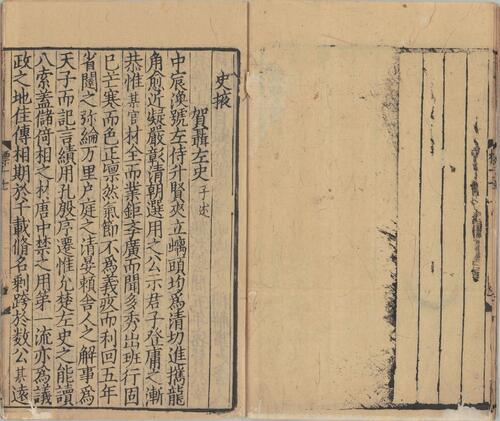 史掖
賀聶左史子述
中宸渙號左侍升賢爽立螭頭均爲清切進攜龍
角愈近凝嚴彰清朝選用之公示君子登庸之漸
恭惟某官材全而業鉅李廣而聞多秀出班行固
已芒寒而色正凛然氣節不爲義疚而利回五年
省闥之弥綸万里户庭之清晏頼舎人之解事爲
天子而記言績用孔殷序遷惟允楚左史之能讀
八索盖儲倚相之材唐中禁之用第一流亦爲議
政之地佳傳相期於千載脩名剰跨於數公某遠